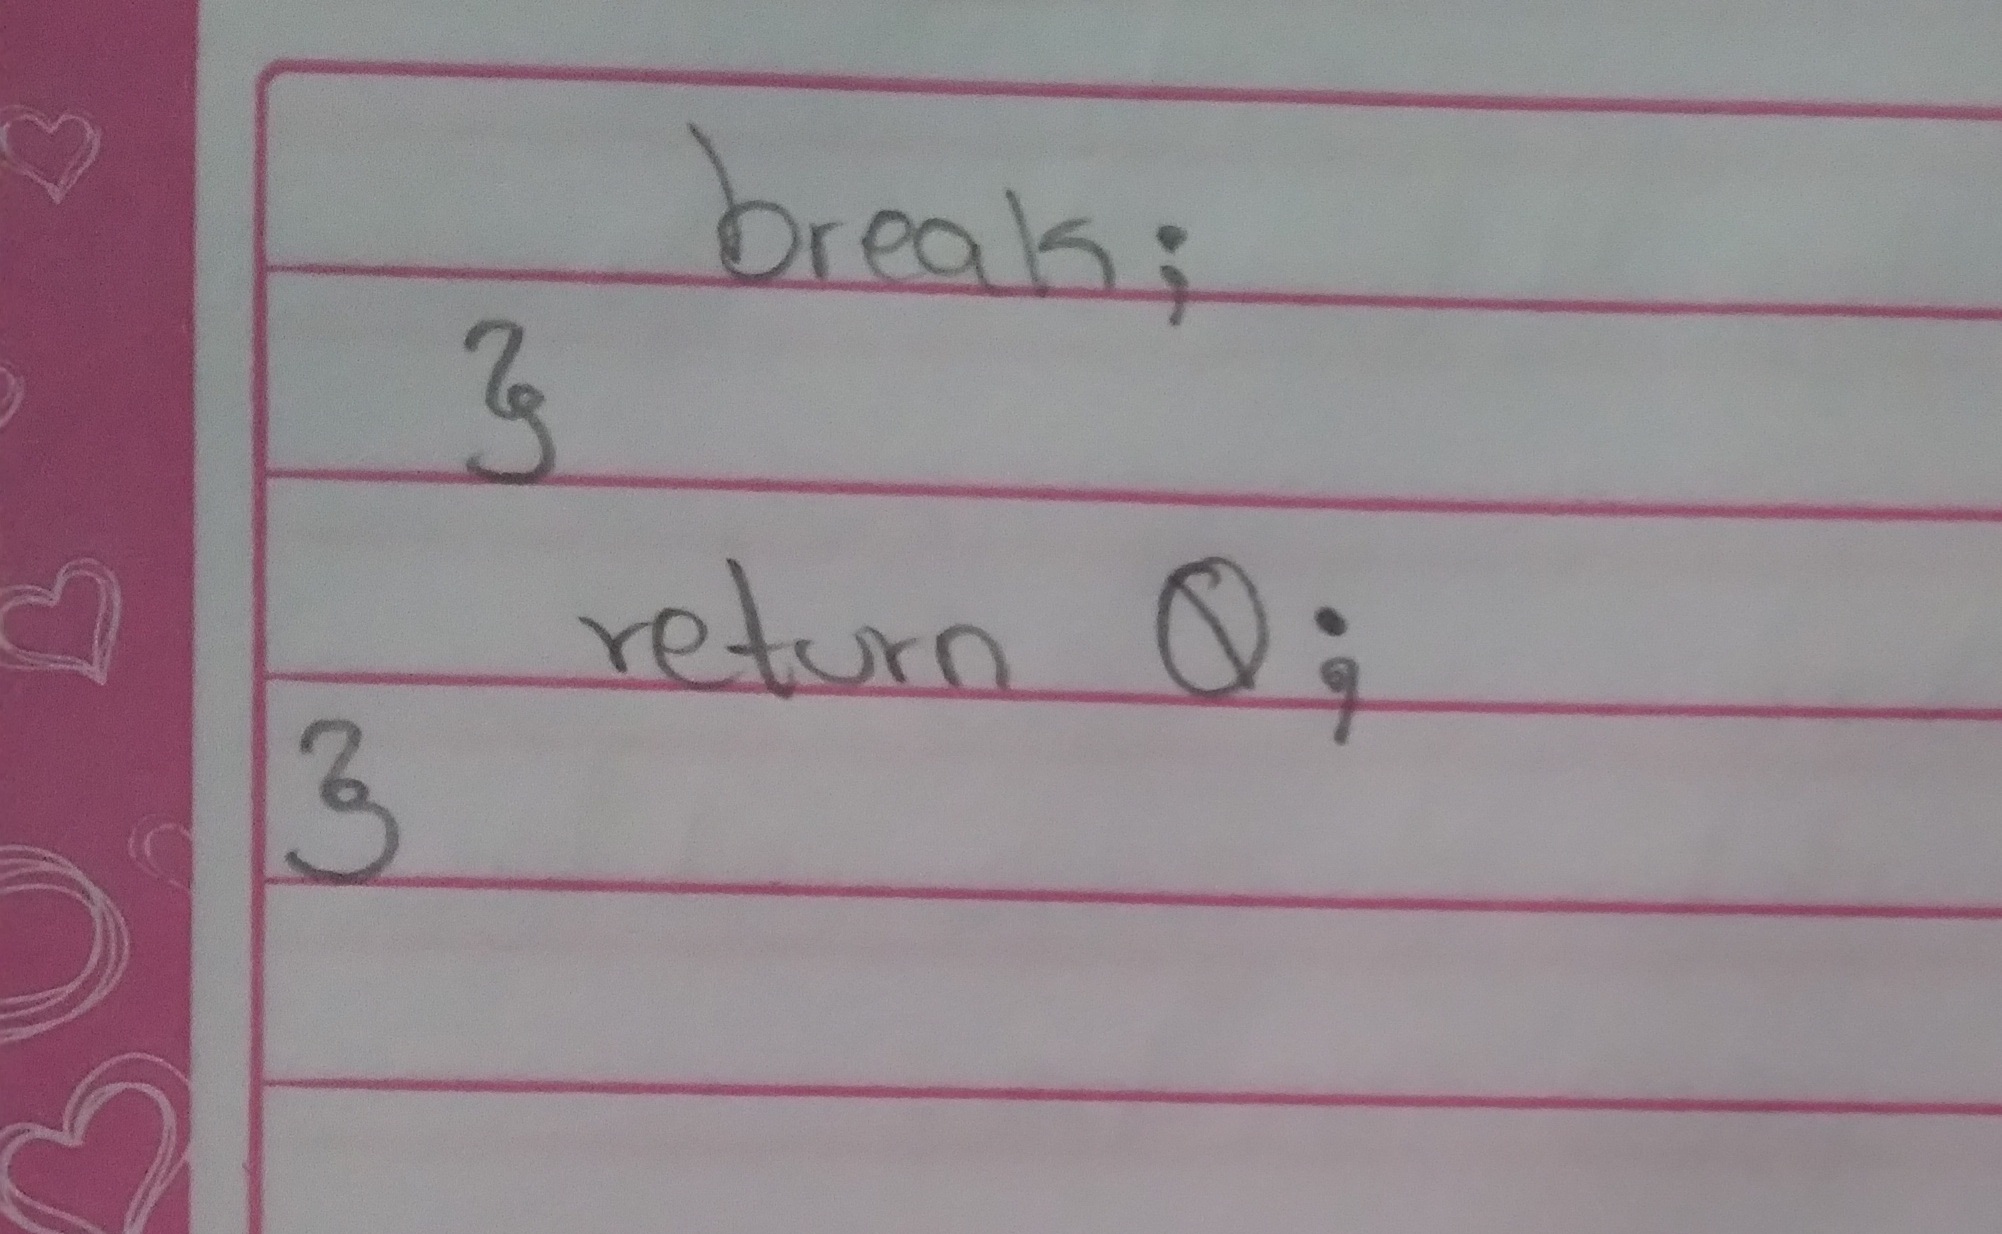 break;
}
return 0;
}